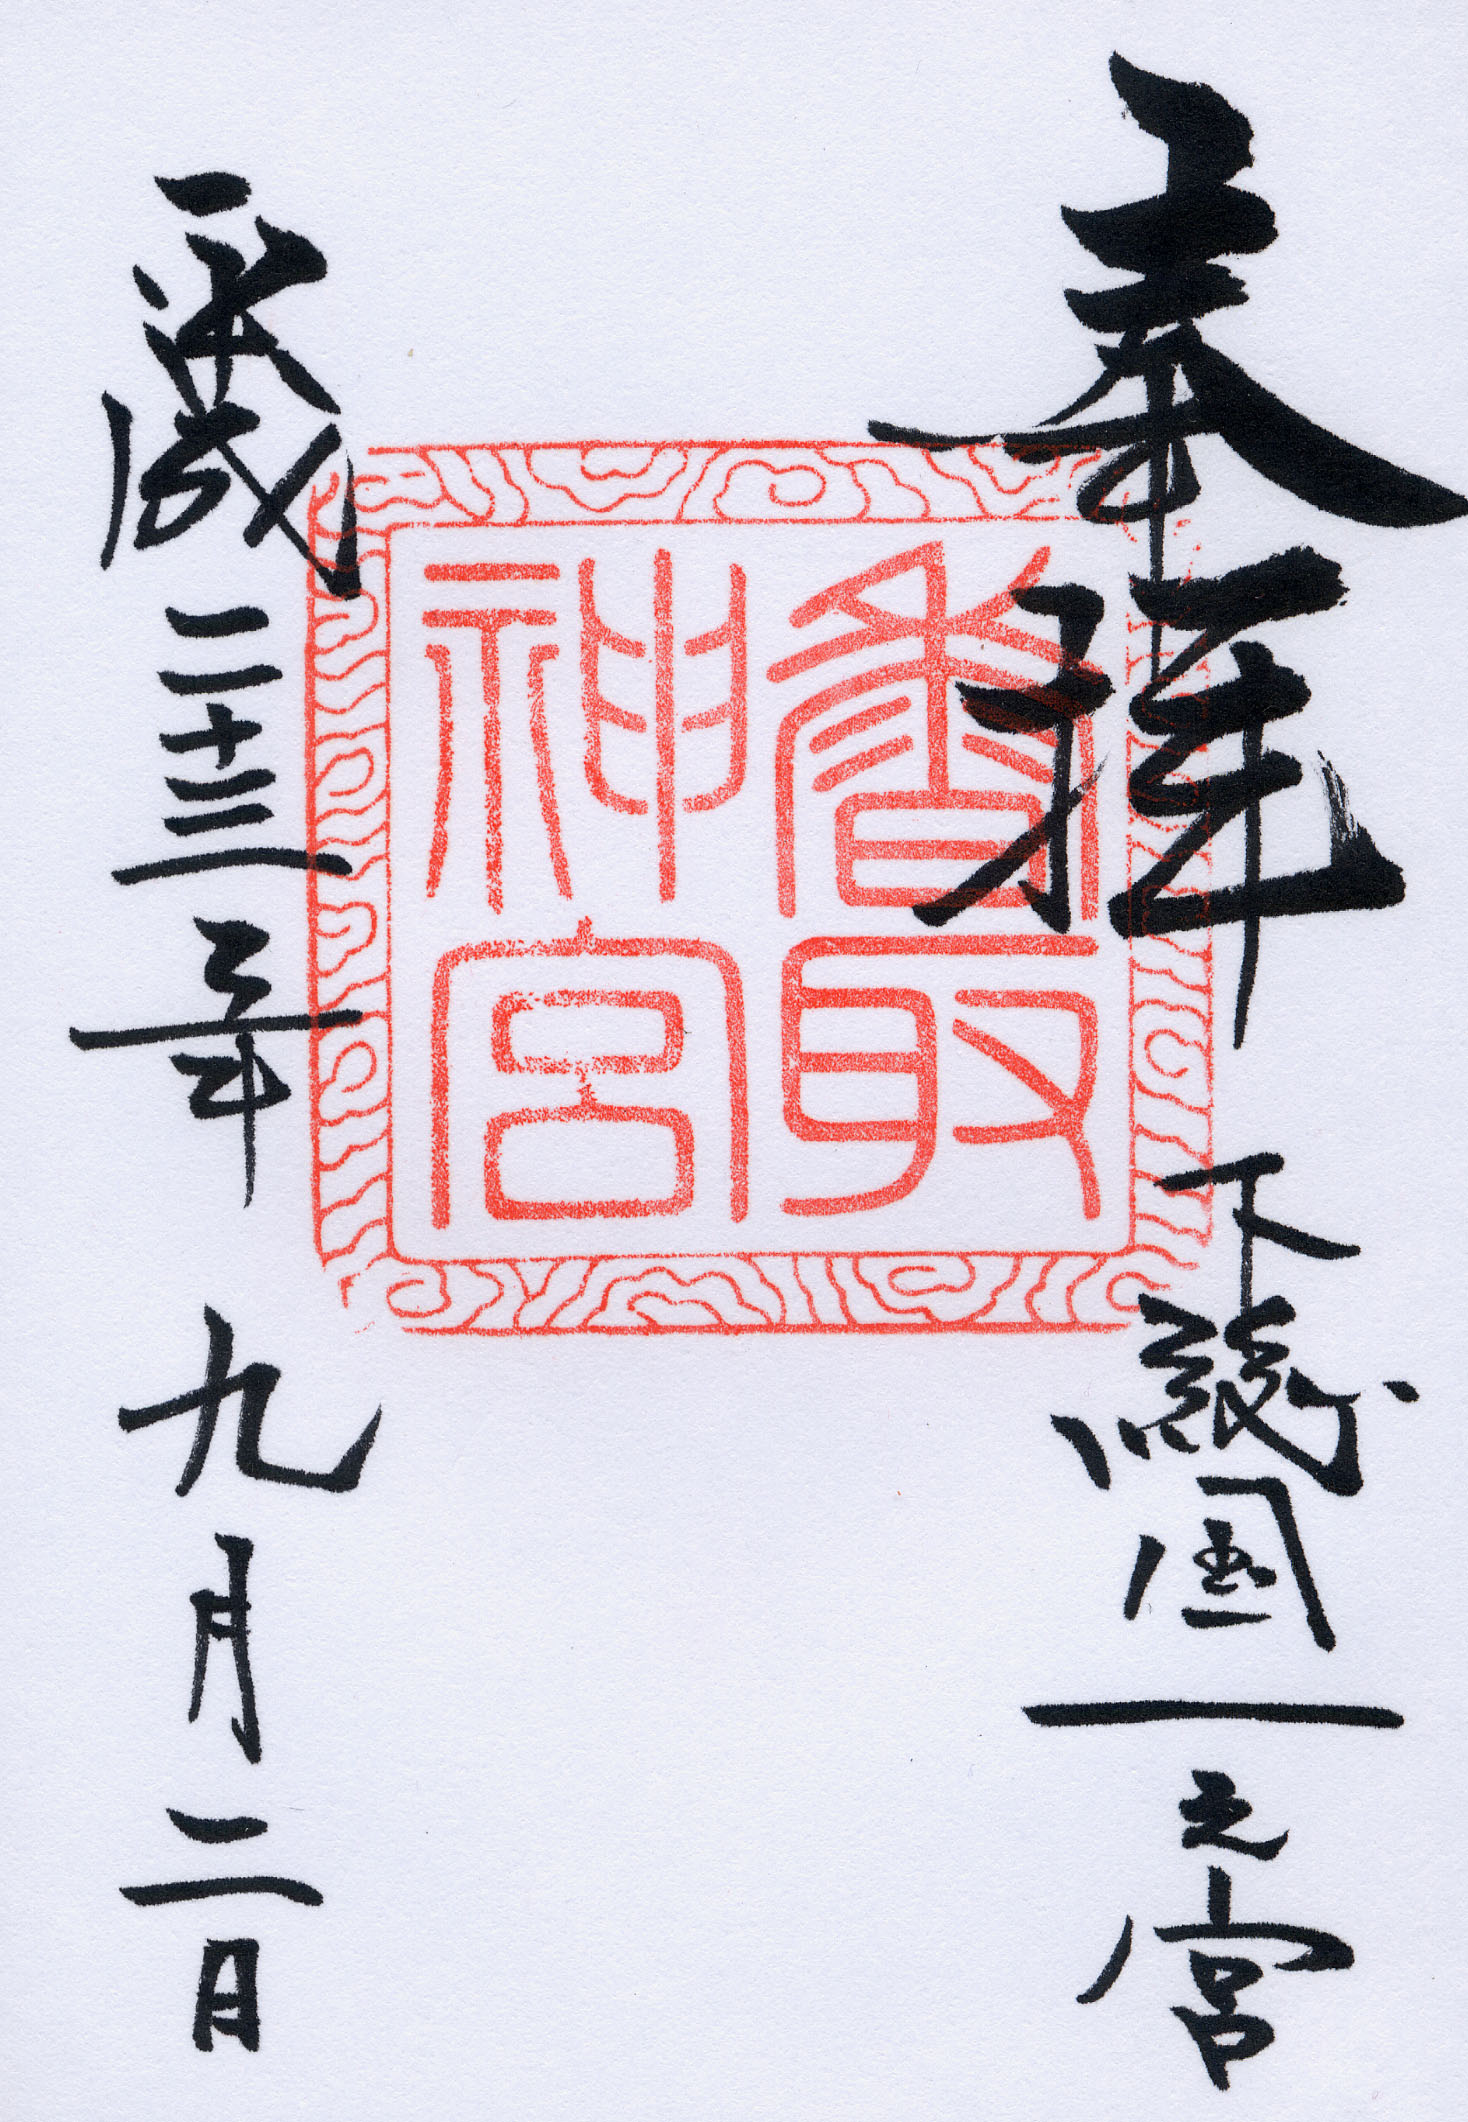 奉拝 下総国一之宮
香取
神宮
平成二十三年九月二日